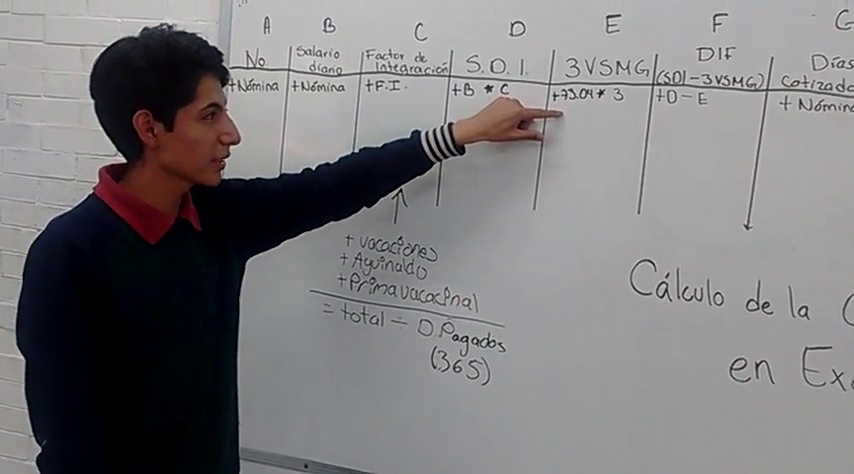 A B C D E F G
No. Salario diario Factor de Integración S.D.I. 3VSMG DIF (SDI-3VSMG) Días Cotizado
+Nómina +Nómina +F.I. +B * C +73.04* 3 +D-E + Nómina
+ vacaciones
+ Aguinaldo
+Prima vacacinal
= total ÷ D.Pagados
(365)
Cálculo de la
en Ex